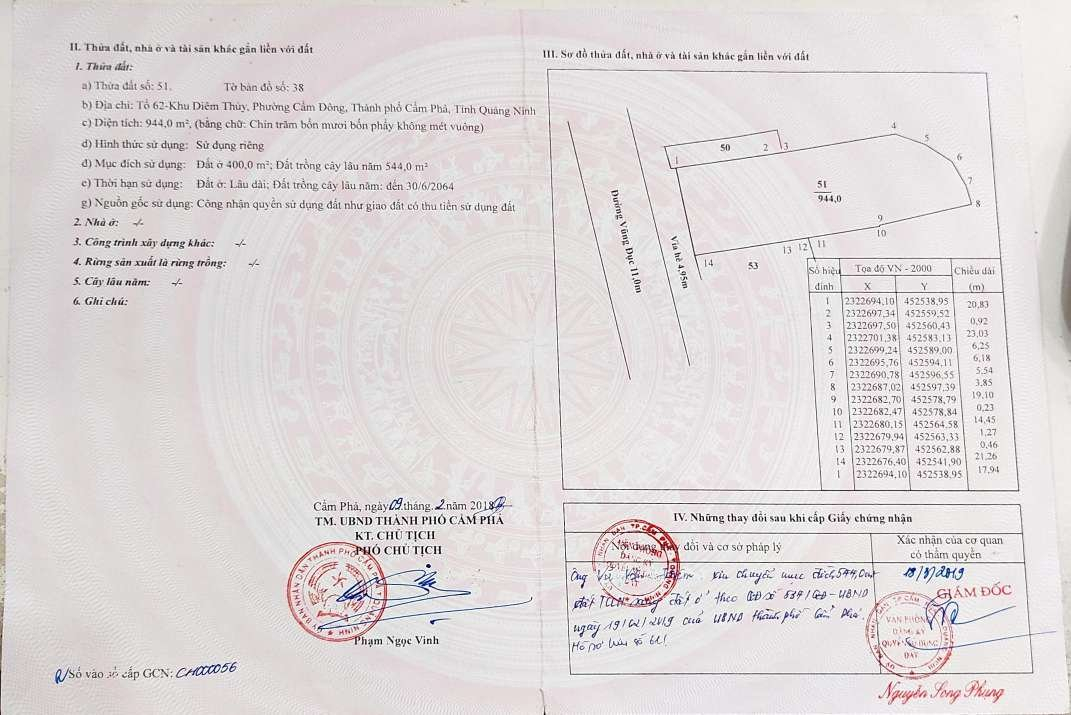 II. Thửa đất, nhà ở và tài sản khác gắn liền với đất
1. Thửa đất:
a) Thửa đất số: 51. Tờ bản đồ số: 38
b) Địa chỉ: Tổ 62-Khu Diêm Thủy, Phường Cẩm Đông, Thành phố Cẩm Phả, Tỉnh Quảng Ninh
c) Diện tích: 944,0 m², (bằng chữ: Chín trăm bốn mươi bốn phẩy không mét vuông)
d) Hình thức sử dụng: Sử dụng riêng
đ) Mục đích sử dụng: Đất ở 400,0 m²; Đất trồng cây lâu năm 544,0 m²
e) Thời hạn sử dụng: Đất ở: Lâu dài; Đất trồng cây lâu năm: đến 30/6/2064
g) Nguồn gốc sử dụng: Công nhận quyền sử dụng đất như giao đất có thu tiền sử dụng đất
2. Nhà ở: -/-
3. Công trình xây dựng khác: -/-
4. Rừng sản xuất là rừng trồng: -/-
5. Cây lâu năm: -/-
6. Ghi chú:
Cẩm Phả, ngày 09 tháng 2 năm 2018
TM. UBND THÀNH PHỐ CẨM PHẢ
KT. CHỦ TỊCH
PHÓ CHỦ TỊCH
Phạm Ngọc Vinh
Số vào sổ cấp GCN: CH000056
III. Sơ đồ thửa đất, nhà ở và tài sản khác gắn liền với đất
50
1 2 3 4 5 6 7 8 9 10 11 12 13 14
51
944,0
53
Đường Vũng Đục 11,0m
Vỉa hè 4,95m
Số hiệu đỉnh Tọa độ VN - 2000 Chiều dài
X Y (m)
1 2322694,10 452538,95
20,83
2 2322697,34 452559,52
0,92
3 2322697,50 452560,43
23,03
4 2322701,38 452583,13
6,25
5 2322699,24 452589,00
6,18
6 2322695,76 452594,11
5,54
7 2322690,78 452596,55
3,85
8 2322687,02 452597,39
19,10
9 2322682,70 452578,79
0,23
10 2322682,47 452578,84
14,45
11 2322680,15 452564,58
1,27
12 2322679,94 452563,33
0,46
13 2322679,87 452562,88
21,26
14 2322676,40 452541,90
17,94
1 2322694,10 452538,95
IV. Những thay đổi sau khi cấp Giấy chứng nhận
Nội dung thay đổi và cơ sở pháp lý
Xác nhận của cơ quan
có thẩm quyền
Ông Vũ xin chuyển mục đích 544,0m²
đất TCLN sang đất ở theo QĐ số 539/QĐ-UBND
ngày 19/02/2019 của UBND thành phố Cẩm Phả.
Hồ sơ lưu số
GIÁM ĐỐC
VĂN PHÒNG
ĐĂNG KÝ
QUYỀN SỬ DỤNG
ĐẤT
Nguyễn Song Phung